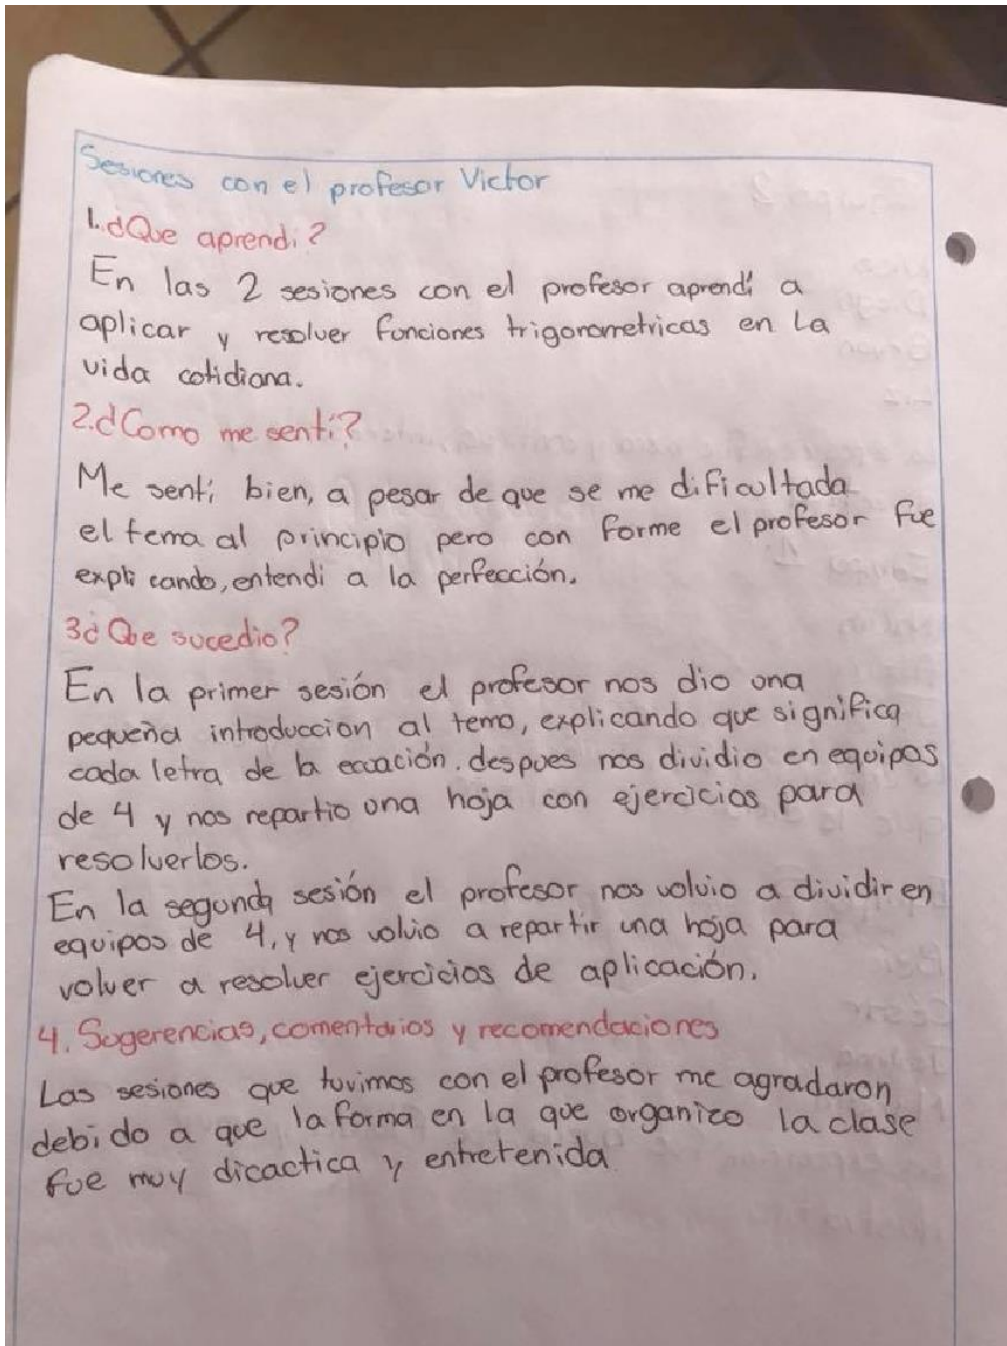 Sesiones con el profesor Victor
1. ¿Que aprendi?
En las 2 sesiones con el profesor aprendí a
aplicar y resolver funciones trigonometricas en la
vida cotidiana.
2. ¿Como me sentí?
Me sentí bien, a pesar de que se me dificultada
el tema al principio pero con forme el profesor fue
explicando, entendi a la perfección.
3 ¿Que sucedio?
En la primer sesión el profesor nos dio una
pequeña introduccion al tema, explicando que significa
cada letra de la ecuación. despues nos dividio en equipos
de 4 y nos repartio una hoja con ejercicios para
resolverlos.
En la segunda sesión el profesor nos volvio a dividir en
equipos de 4, y nos volvio a repartir una hoja para
volver a resolver ejercicios de aplicación.
4. Sugerencias, comentarios y recomendaciones
Las sesiones que tuvimos con el profesor me agradaron
debido a que la forma en la que organizo la clase
fue muy dicactica y entretenida